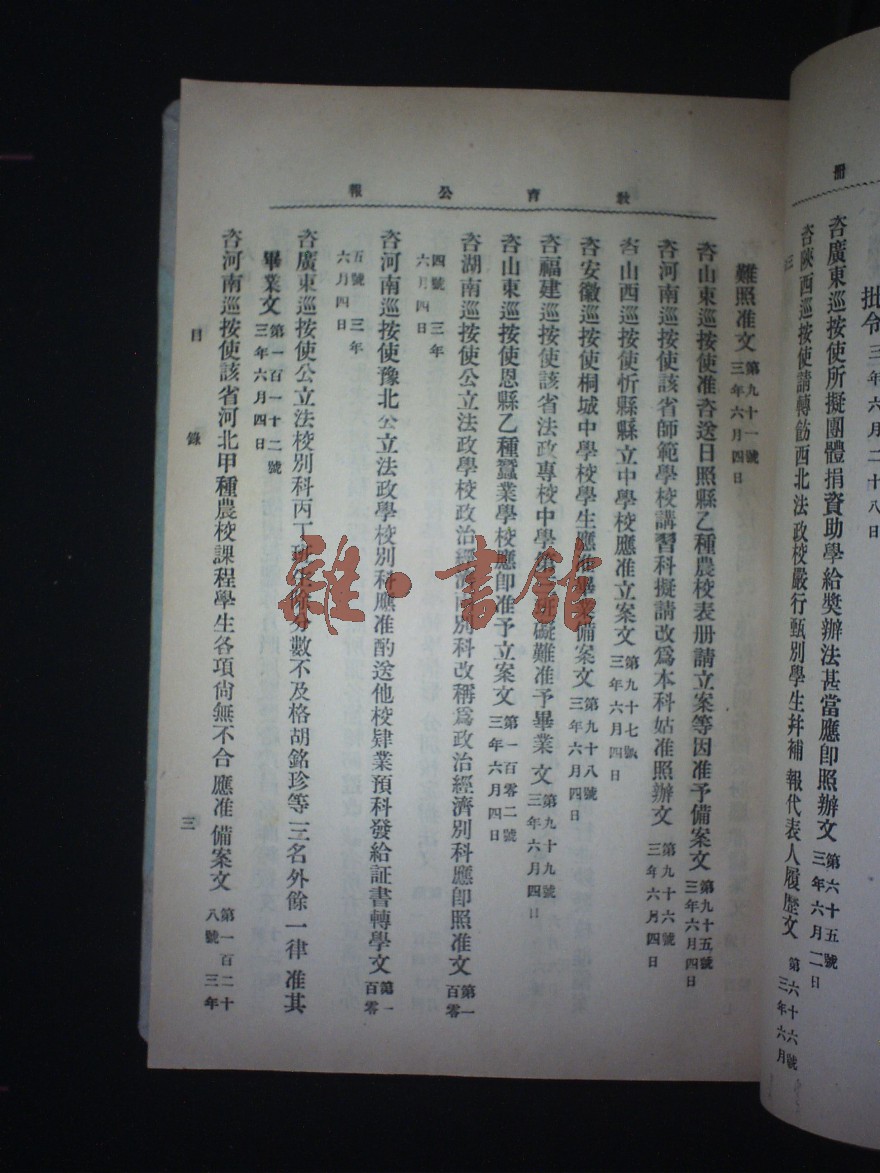 冊
批令 三年六月二十八日
咨廣東巡按使所擬團體捐資助學給獎辦法甚當應卽照辦文 第六十五號 三年六月二日
咨陝西巡按使請轉飭西北法政校嚴行甄別學生幷補報代表人履歷文 第六十六號 三年六月
三
教育公報
難照准文 第九十一號 三年六月四日
咨山東巡按使准咨送日照縣乙種農校表册請立案等因准予備案文 第九十五號 三年六月四日
咨河南巡按使該省師範學校講習科擬請改爲本科姑准照辦文 第九十六號 三年六月四日
咨山西巡按使忻縣縣立中學校應准立案文 第九十七號 三年六月四日
咨安徽巡按使桐城中學校學生應准畢業備案文 第九十八號 三年六月四日
咨福建巡按使該省法政專校中學第 班礙難准予畢業文 第九十九號 三年六月四日
咨山東巡按使恩縣乙種蠶業學校應卽准予立案文 第一百零二號 三年六月四日
咨湖南巡按使公立法政學校政治經濟兩別科改稱爲政治經濟別科應卽照准文 第一百零
四號 三年六月四日
咨河南巡按使豫北公立法政學校別科應准酌送他校肄業預科發給証書轉學文 第一百零
五號 三年六月四日
咨廣東巡按使公立法校別科丙丁班生除分數不及格胡銘珍等三名外餘一律准其
畢業文 第一百一十二號 三年六月四日
咨河南巡按使該省河北甲種農校課程學生各項尙無不合應准備案文 第一百二十八號 三年
目錄
三
雜·書館